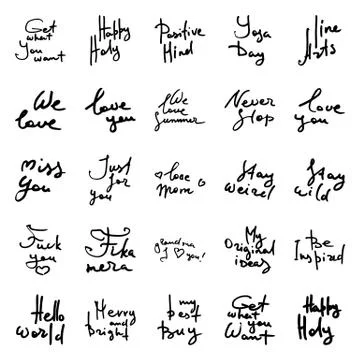 Get
what
You want
Happy
Holy
Positive
Mind
Yoga
Day
line
Arts
We
love
love
you
We
love
Summer
Never
Stop
love
you
Miss
you
Just
for
you
love
Mom
Stay
weird
Stay
wild
Fuck
you
Fika
mera
Grandma
I ♡ you!
My
Original
ideas
Be
Inspired
Hello
World
Merry
and
Bright
my
best
Buy
Get
what
you
Want
Happy
Holy